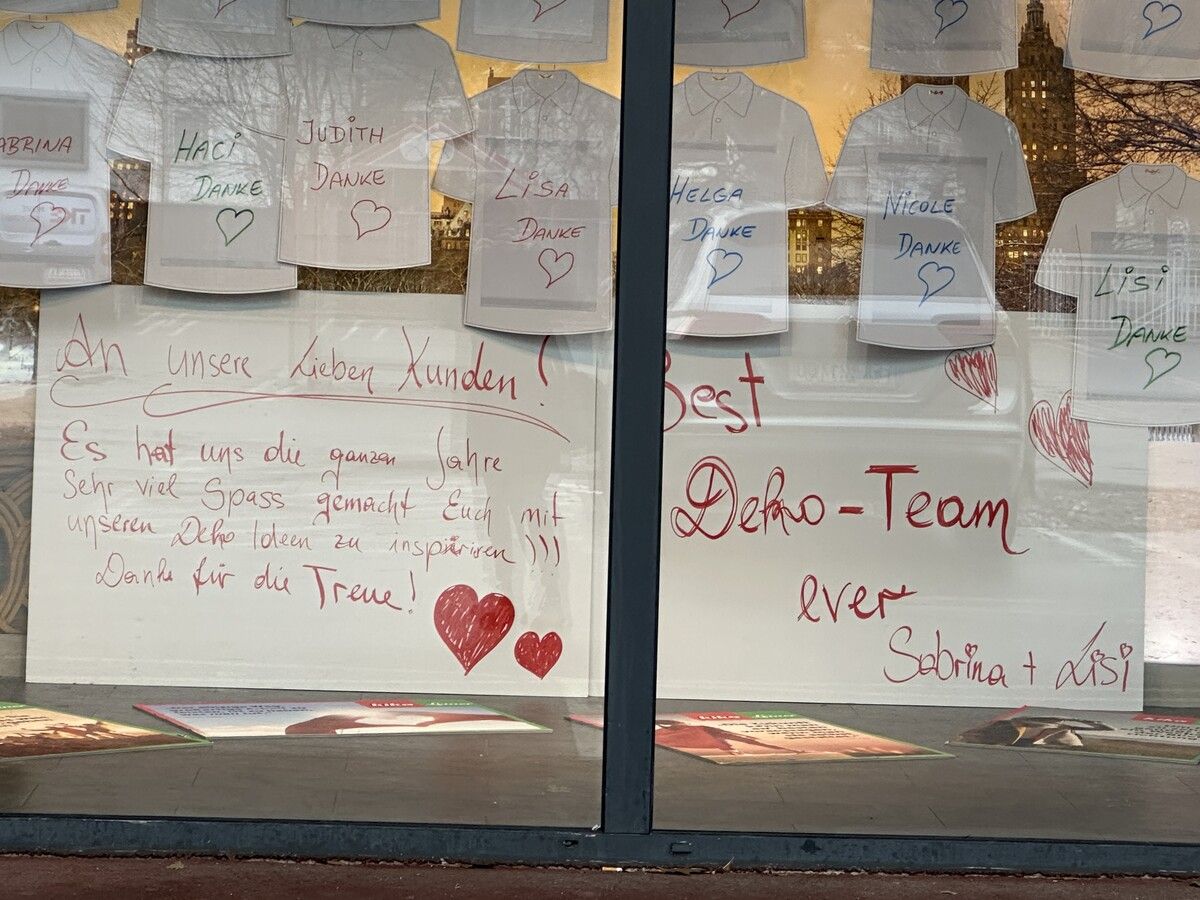 SABRINA
DANKE
HACI
DANKE
JUDITH
DANKE
LISA
DANKE
HELGA
DANKE
NICOLE
DANKE
LISI
DANKE
An unsere Lieben Kunden!
Es hat uns die ganzen Jahre
Sehr viel Spass gemacht Euch mit
unseren Deko Ideen zu inspiriren )))
Danke für die Treue!
Best
Deko-Team
ever
Sabrina + Lisi
kika Leiner